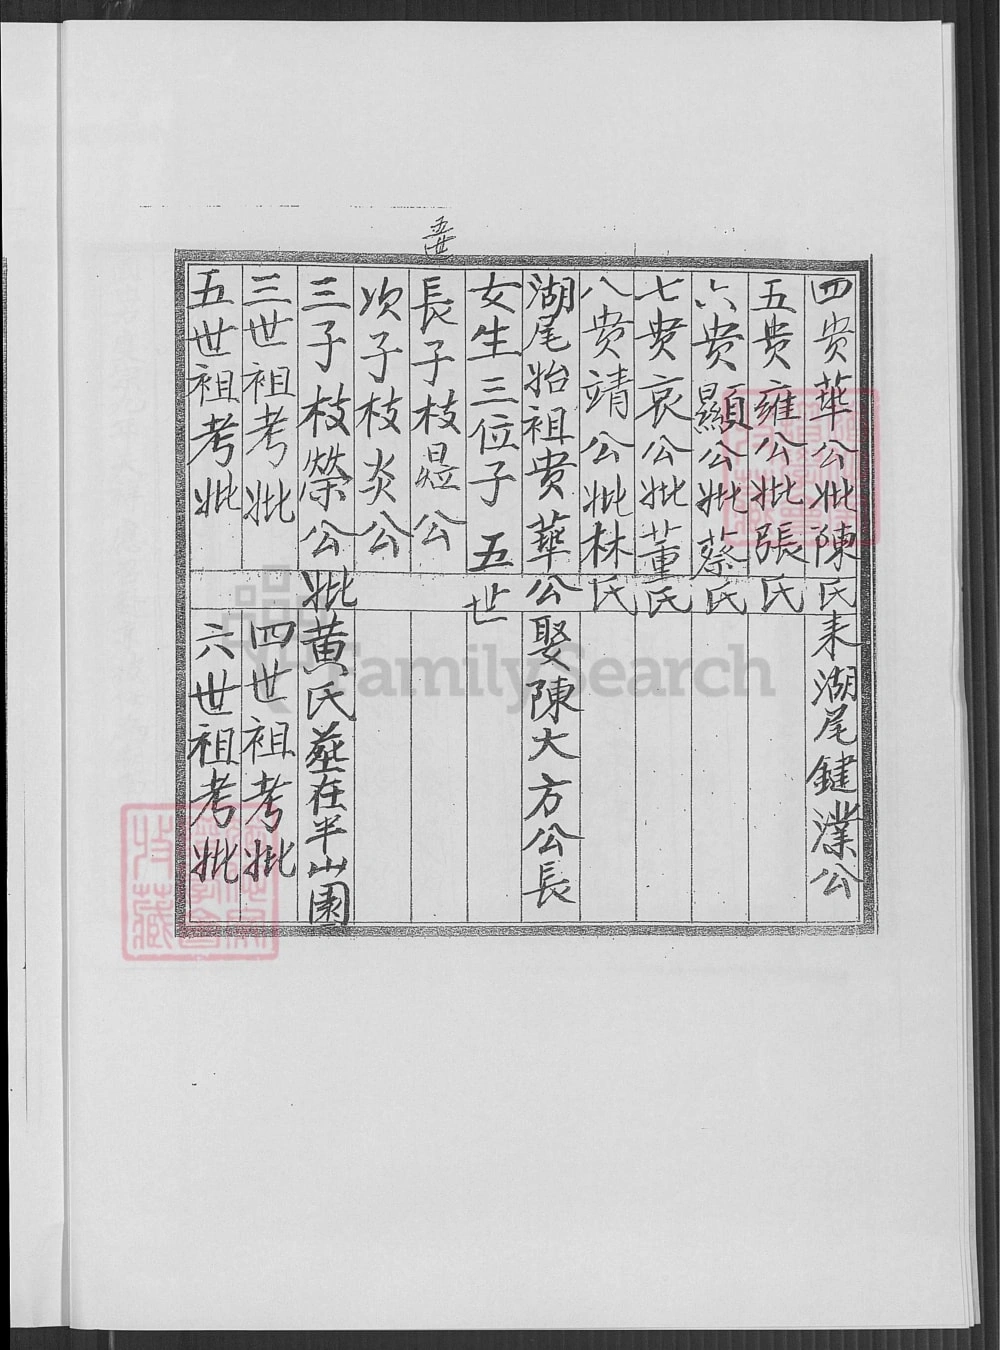 四貴華公妣陳氏来湖尾鍵濮公
五貴雍公妣張氏
六貴顯公妣蔡氏
七貴哀公妣董氏
八貴靖公妣林氏
湖尾始祖貴華公娶陳大方公長
女生三位子 五世
五世
長子枝焜公
次子枝炎公
三子枝榮公妣黄氏塟在半山園
三世祖考妣 四世祖考妣
五世祖考妣 六世祖考妣
FamilySearch